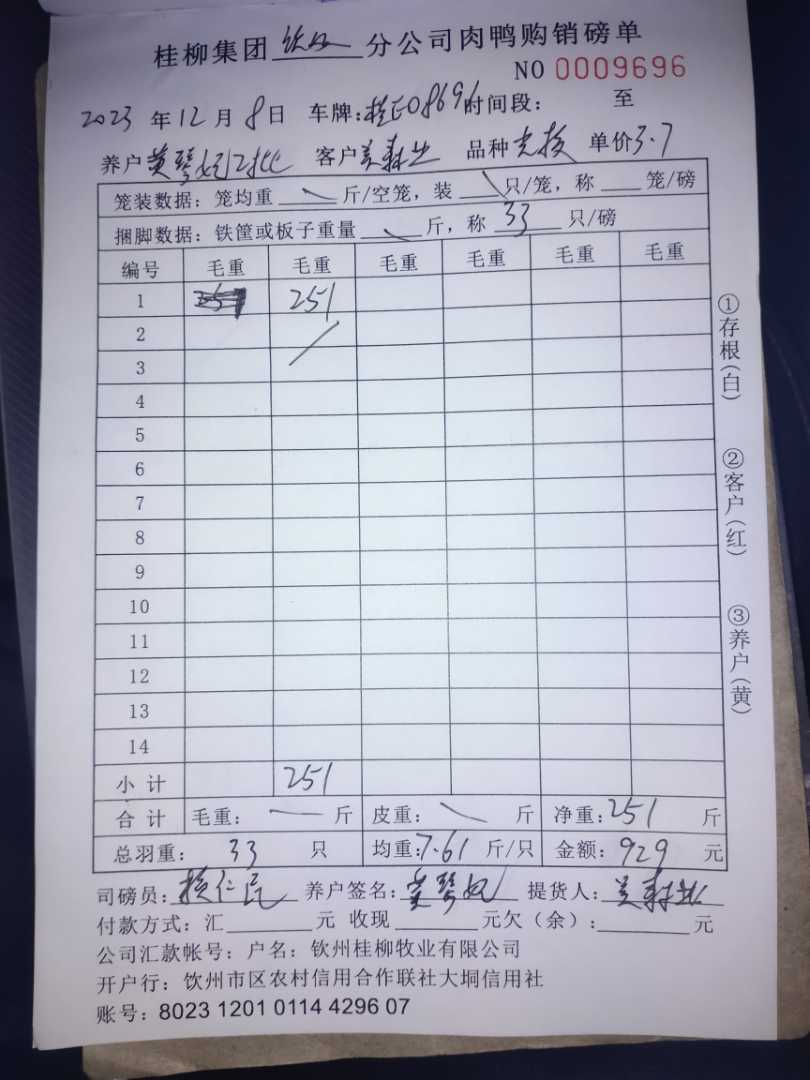 桂柳集团 分公司肉鸭购销磅单
NO 0009696
2023 年 12 月 8 日 车牌: 时间段: 至
养户 黄琴 客户 品种 单价 3.7
笼装数据: 笼均重 斤/空笼, 装 只/笼, 称 笼/磅
捆脚数据: 铁筐或板子重量 斤, 称 33 只/磅
编号 毛重 毛重 毛重 毛重 毛重 毛重
1 251
2
3
4
5
6
7
8
9
10
11
12
13
14
小计 251
合计 毛重: 斤 皮重: 斤 净重: 251 斤
总羽重: 33 只 均重: 7.61 斤/只 金额: 929 元
司磅员: 养户签名: 提货人:
付款方式: 汇 元 收现 元欠（余）: 元
公司汇款帐号: 户名: 钦州桂柳牧业有限公司
开户行: 饮州市区农村信用合作联社大垌信用社
账号: 8023 1201 0114 4296 07
①存根（白）
②客户（红）
③养户（黄）